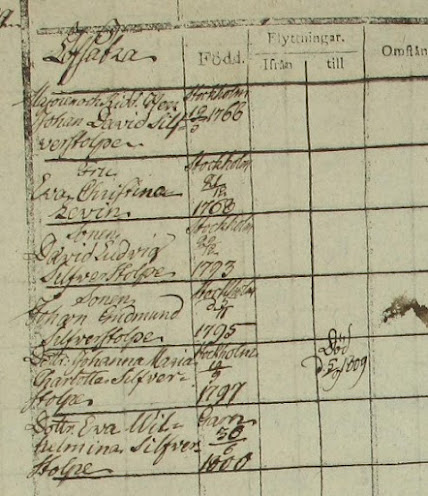 Lössätra
Född.
Flyttningar.
Ifrån
till
Omstän
Majoren och Ridd. Herr
Johan David Silf-
verstolpe
Stockholm
1766
Fru
Eva Christina
Levin
Stockholm
21/12
1768
Sonen
David Ludvig
Silfverstolpe
Stockholm
1793
Sonen
Johan Gudmund
Silfverstolpe
Stockholm
1795
Dottr. Johanna Maria
Charlotta Silfver-
stolpe
Stockholm
1797
Död
1809
Dottr. Eva Wil-
helmina Silfver
stolpe
30/6
1800